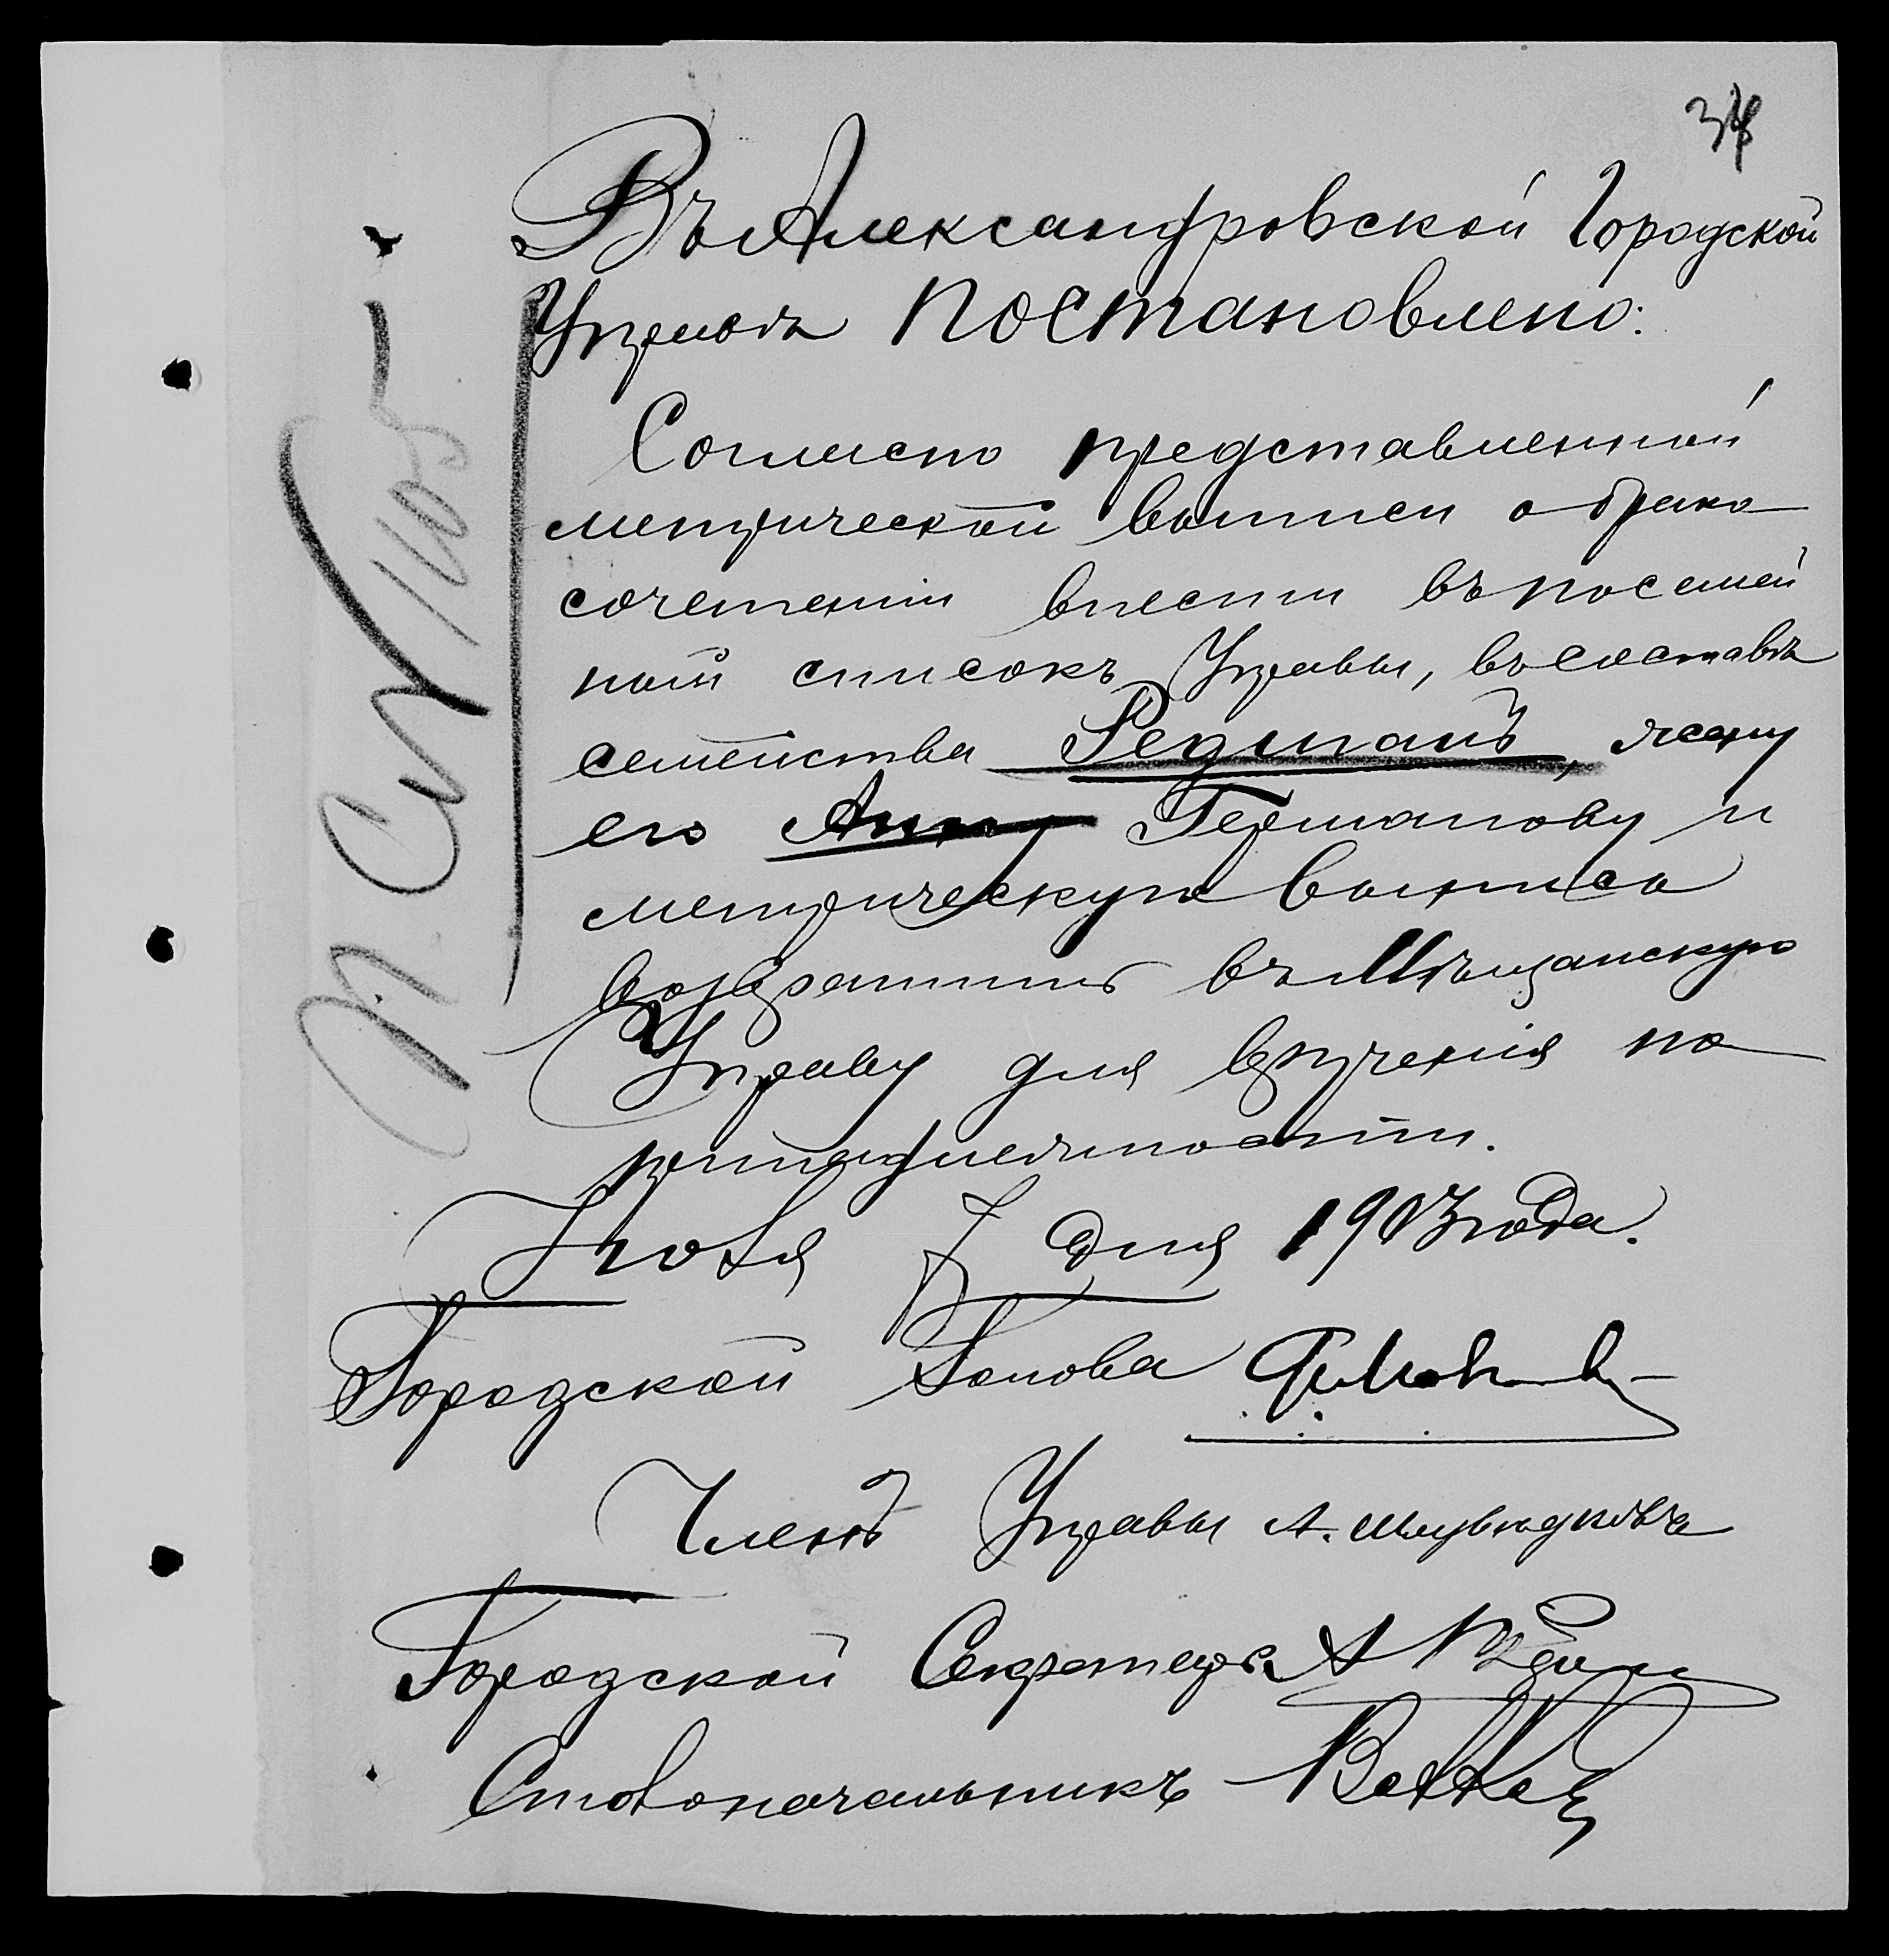 Въ Александровской Городской
Управѣ постановлено:
Согласно представленной
метрической выписи о брако
сочетаніи внести въ посемей
ный списокъ Управы, въ составъ
семейства Редманъ, жену
его Анну Германову и
метрическую выпись
возвратить въ Мѣщанскую
Управу для врученія по
принадлежности.
Іюля 7 дня 1903 года.
Городской Голова
Членъ Управы А.
Городской Секретарь А
Столоначальникъ